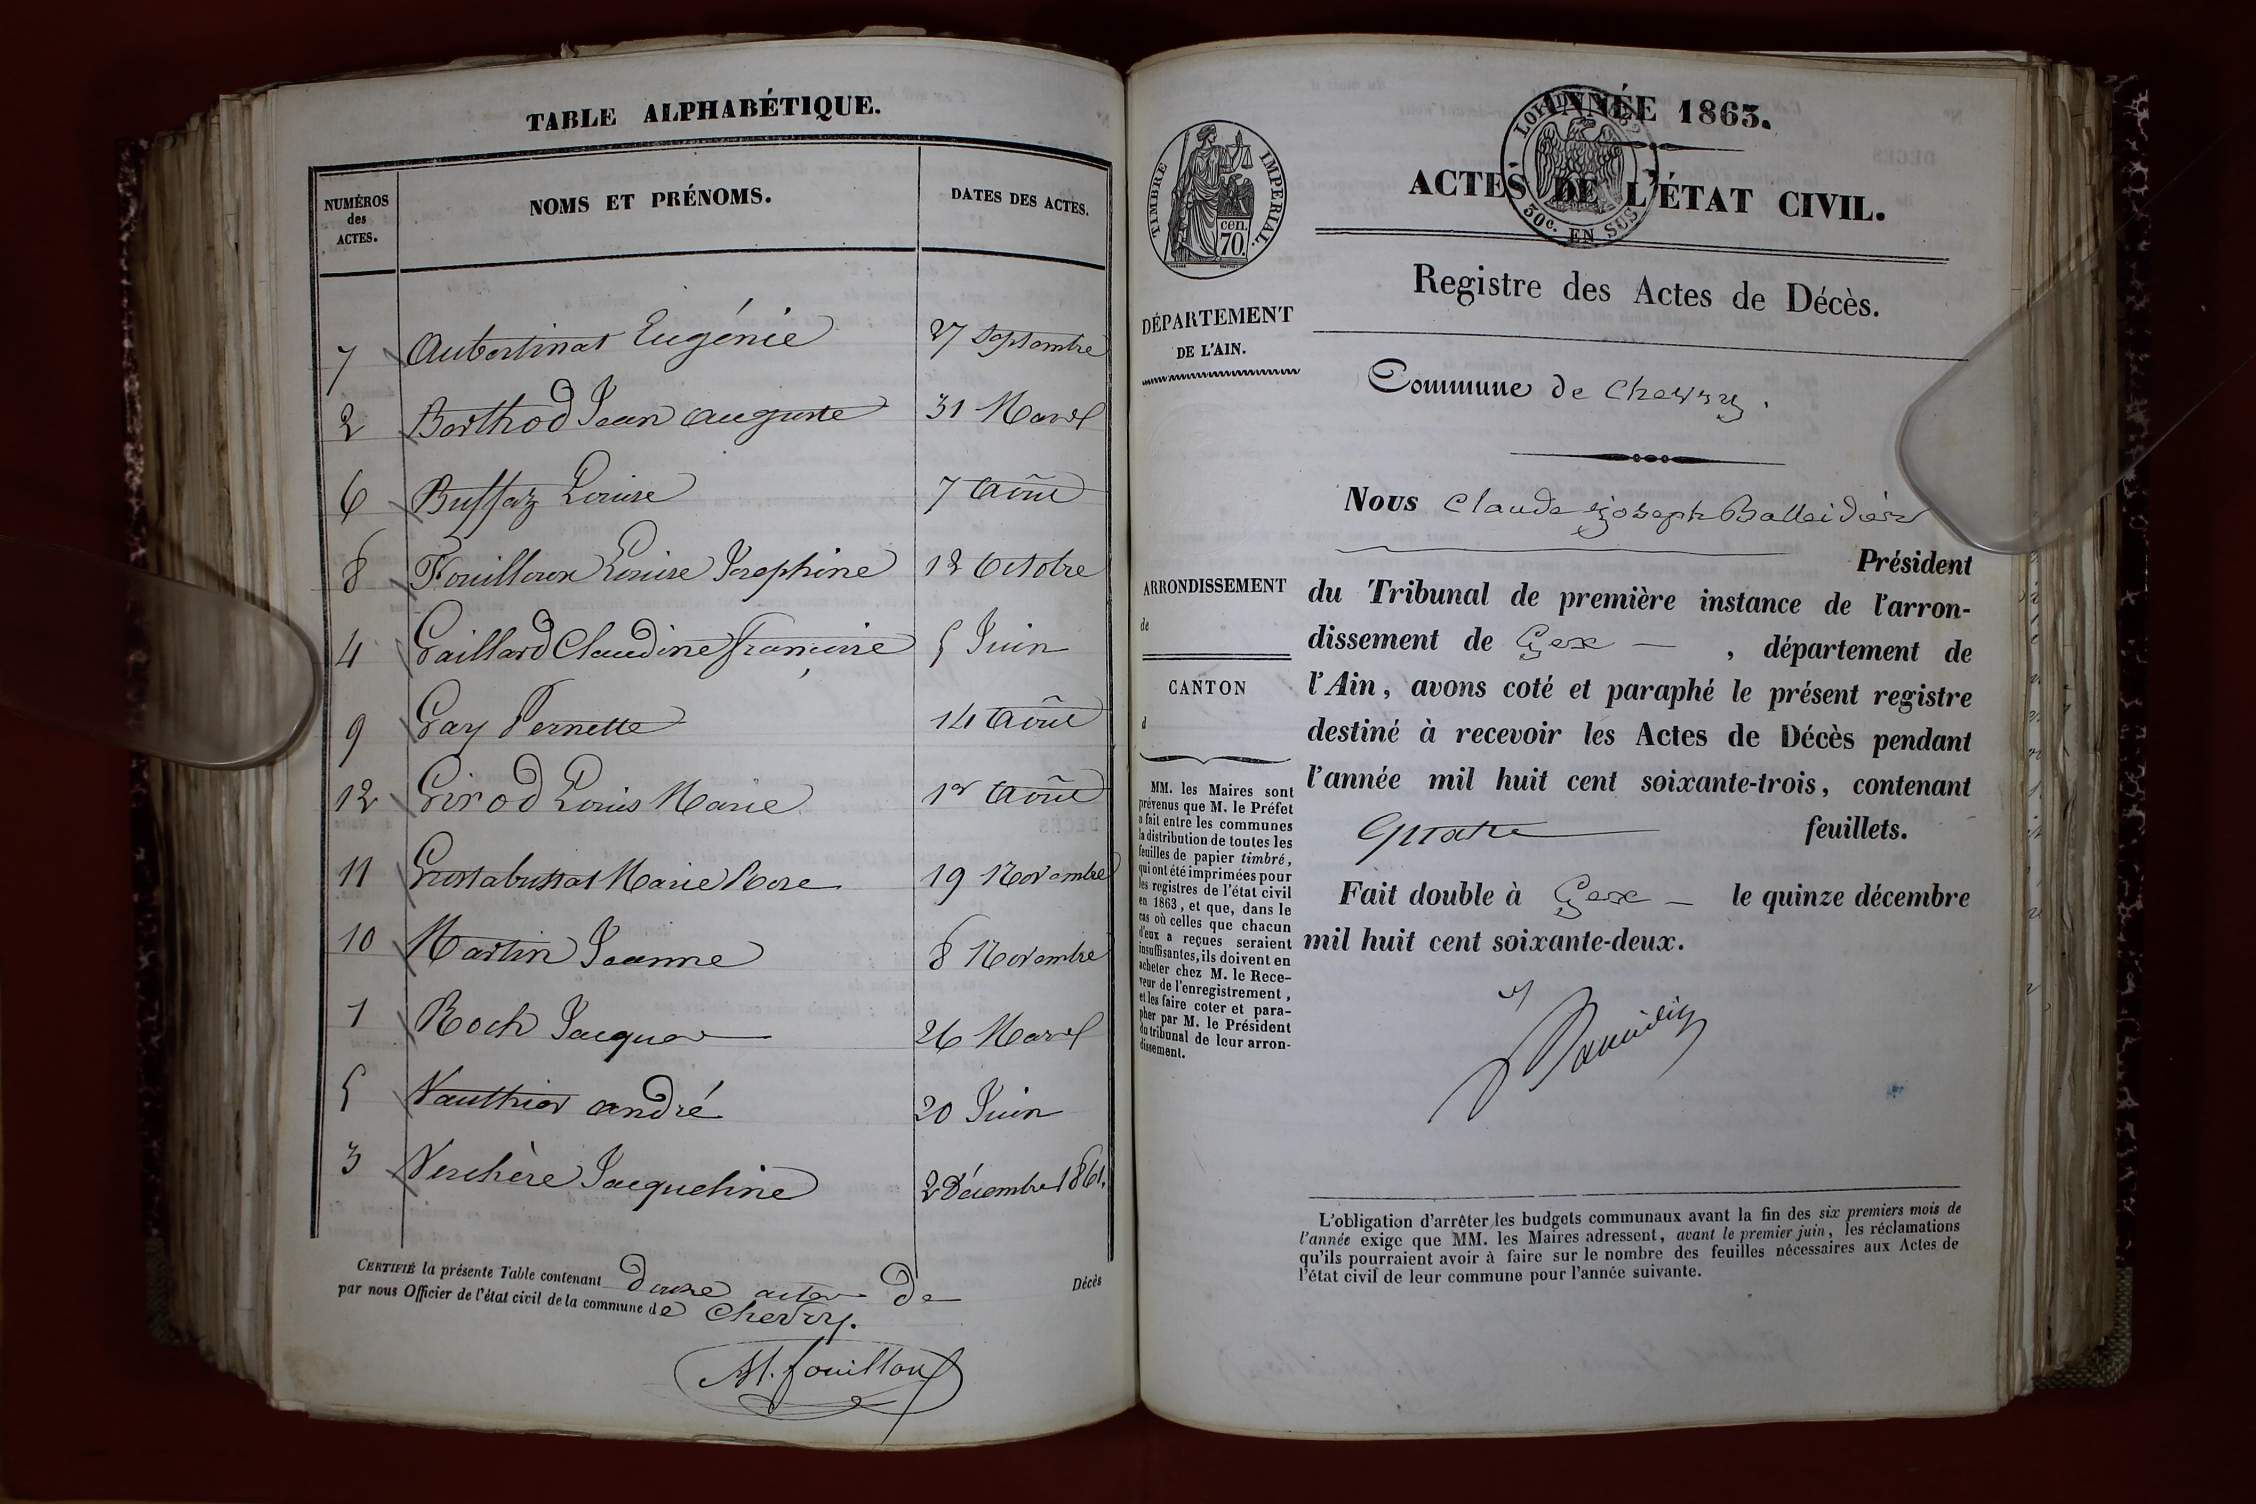 TABLE ALPHABÉTIQUE.
NUMÉROS
des
ACTES.
NOMS ET PRÉNOMS.
DATES DES ACTES.
7 Aubertinat Eugénie 27 Septembre
2 Berthod Jean auguste 31 Mars
6 Buffaz Louise 7 Août
8 Fouilloux Louise Josephine 12 Octobre
4 Gaillard Claudine françoise 5 Juin
9 Gay Pernette 14 Août
12 Girod Louis Marie 1er Août
11 Marie Rose 19 Novembre
10 Martin Jeanne 8 Novembre
1 Roch Jacques 26 Mars
5 Vauthier andré 20 Juin
3 Verchère Jacqueline 2 Décembre 1861.
CERTIFIÉ la présente Table contenant Douze actes de Décès
par nous Officier de l'état civil de la commune de Chevry.
M. fouilloux
TIMBRE IMPERIAL.
cen.
70.
DÉPARTEMENT
DE L'AIN.
ARRONDISSEMENT
de
CANTON
d
MM. les Maires sont
prévenus que M. le Préfet
a fait entre les communes
la distribution de toutes les
feuilles de papier timbré,
qui ont été imprimées pour
les registres de l'état civil
en 1863, et que, dans le
cas où celles que chacun
d'eux a reçues seraient
insuffisantes, ils doivent en
acheter chez M. le Rece-
veur de l'enregistrement,
et les faire coter et para-
pher par M. le Président
du tribunal de leur arron-
dissement.
ANNÉE 1863.
50c. EN SUS
ACTES DE L'ÉTAT CIVIL.
Registre des Actes de Décès.
Commune de Chevry.
Nous Claude Joseph Balleidier
Président
du Tribunal de première instance de l'arron-
dissement de Gex — , département de
l'Ain, avons coté et paraphé le présent registre
destiné à recevoir les Actes de Décès pendant
l'année mil huit cent soixante-trois, contenant
quatre feuillets.
Fait double à Gex — le quinze décembre
mil huit cent soixante-deux.
L'obligation d'arrêter les budgets communaux avant la fin des six premiers mois de
l'année exige que MM. les Maires adressent, avant le premier juin, les réclamations
qu'ils pourraient avoir à faire sur le nombre des feuilles nécessaires aux Actes de
l'état civil de leur commune pour l'année suivante.